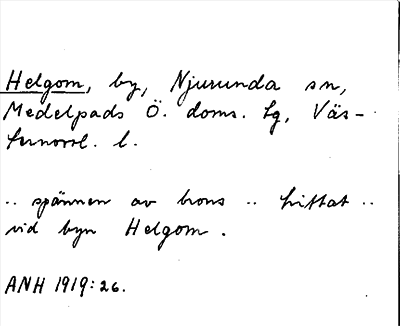 Helgom, by, Njurunda sn,
Medelpads Ö. doms. tg, Väs-
ternorrl. l.
.. spännen av brons .. hittat ..
vid byn Helgom.
ANH 1919:26.